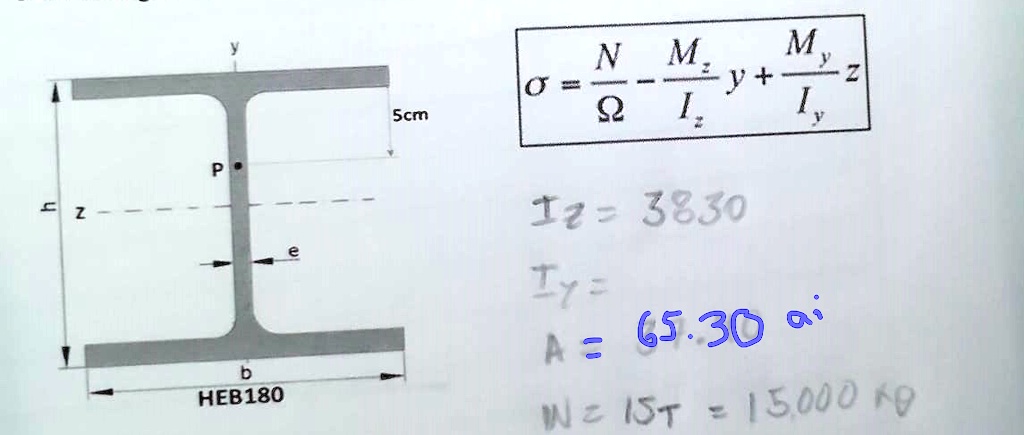 y
5cm
P
h
z
e
b
HEB180
σ = N/Ω - M_z/I_z y + M_y/I_y z
Iz = 3830
Iy =
A = 65.30
N = 15T = 15.000 kg